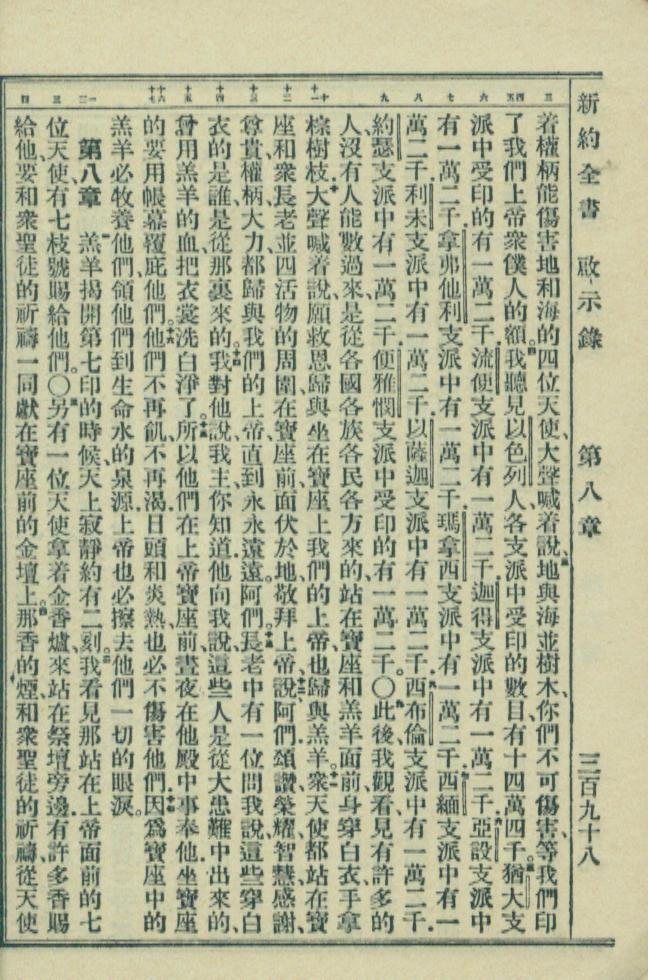 新約全書 啟示錄 第八章 三百九十八
着權柄能傷害地和海的四位天使大聲喊着說地與海並樹木你們不可傷害等我們印
了我們上帝衆僕人的額我聽見以色列人各支派中受印的數目有十四萬四千猶大支
派中受印的有一萬二千流便支派中有一萬二千迦得支派中有一萬二千亞設支派中
有一萬二千拿弗他利支派中有一萬二千瑪拿西支派中有一萬二千西緬支派中有一
萬二千利未支派中有一萬二千以薩迦支派中有一萬二千西布倫支派中有一萬二千
約瑟支派中有一萬二千便雅憫支派中受印的有一萬二千〇此後我觀看見有許多的
人沒有人能數過來是從各國各族各民各方來的站在寶座和羔羊面前身穿白衣手拿
棕樹枝大聲喊着說願救恩歸與坐在寶座上我們的上帝也歸與羔羊衆天使都站在寶
座和衆長老並四活物的周圍在寶座前面伏於地敬拜上帝說阿們頌讚榮耀智慧感謝
尊貴權柄大力都歸與我們的上帝直到永永遠遠阿們長老中有一位問我說這些穿白
衣的是誰是從那裏來的我對他說我主你知道他向我說這些人是從大患難中出來的
曾用羔羊的血把衣裳洗白淨了所以他們在上帝寶座前晝夜在他殿中事奉他坐寶座
的要用帳幕覆庇他們他們不再飢不再渴日頭和炎熱也必不傷害他們因爲寶座中的
羔羊必牧養他們領他們到生命水的泉源上帝也必擦去他們一切的眼淚
第八章 羔羊揭開第七印的時候天上寂靜約有二刻我看見那站在上帝面前的七
位天使有七枝號賜給他們〇另有一位天使拿着金香爐來站在祭壇旁邊有許多香賜
給他要和衆聖徒的祈禱一同獻在寶座前的金壇上那香的煙和衆聖徒的祈禱從天使